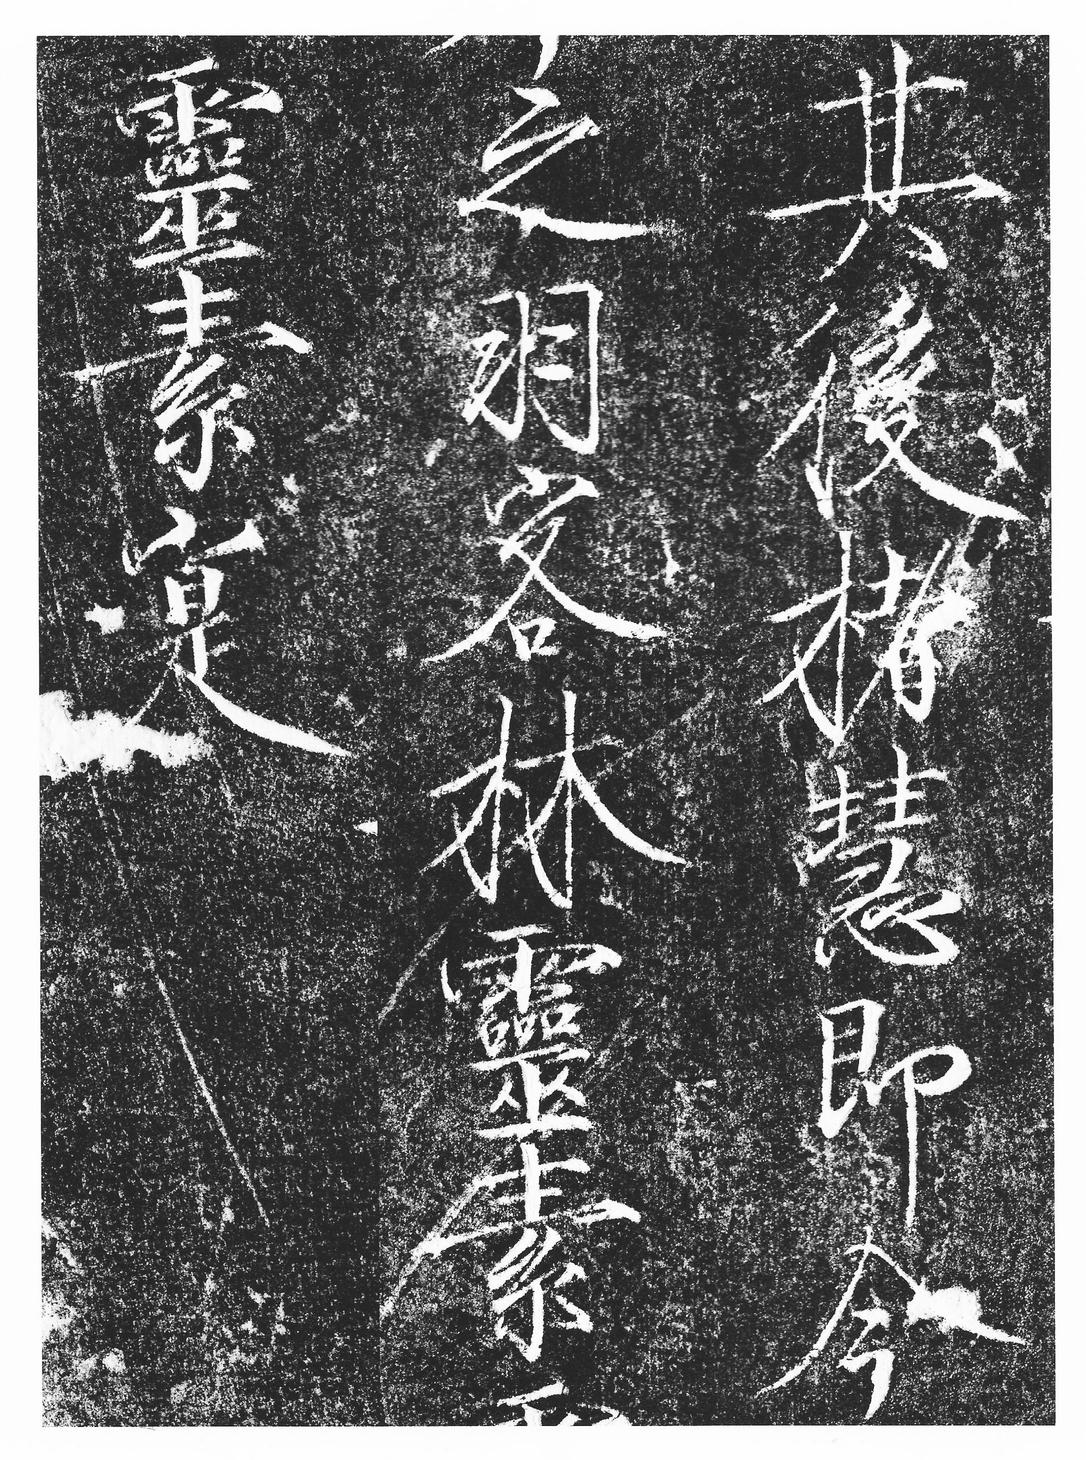 其後楮慧即今
之羽客林靈素
靈素寔